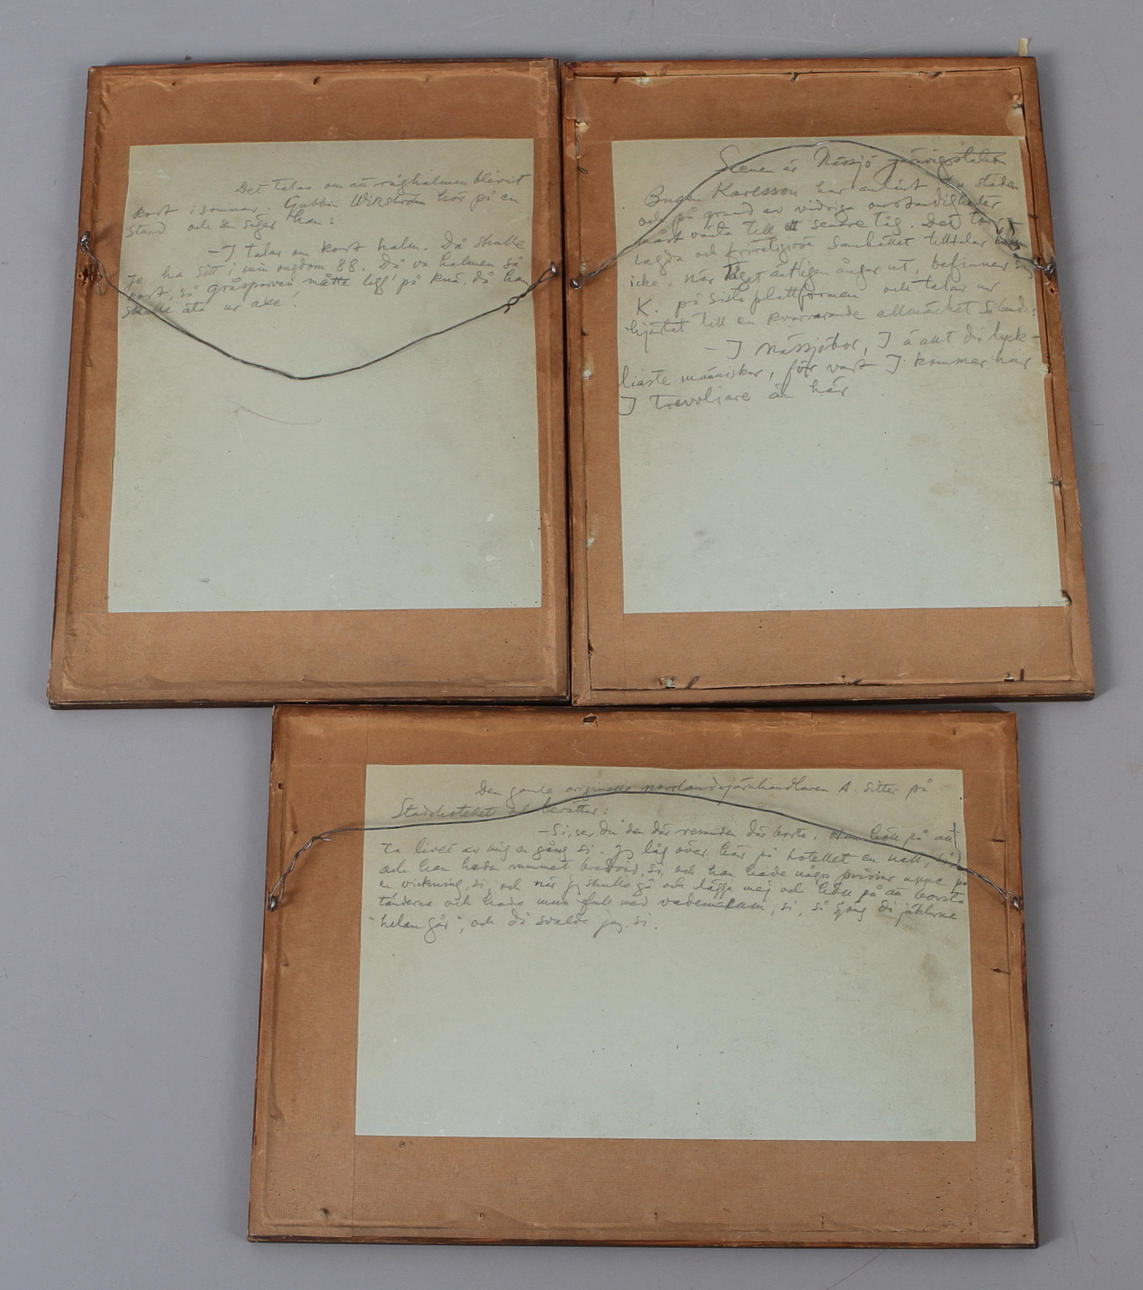 Det talas om att råghalmen blivit
kort i sommar. Gubben Wikström hör på en
stund och sen säger han:
- I, talar om kort halm. Då skulle
I ha sett i min ungdom 88. Då va halmen så
kort, så gråsparven måtte ligg' på knä, då han
skulle äta ur axe'.
Scenen är Nässjö järnvägsstation
Bugen Karlsson har anlänt till staden
och på grund av vidriga omständigheter
måst vänta till ett senare tåg. Det torr-
lagda och frireligiösa samhället tilltalar honom
icke. När tåget äntligen ångar ut, befinner sig
K. på sista plattformen och talar ur
hjärtat till en kvarvarande allmänhet sålunda:
- I Nässjöbor, I ä att di lyck-
ligaste människor, för vart I kommer har
I trevligare än här
Den gamle originelle norrlandsjärnhandlaren A. sitter på
Stadshotellet och berättar:
- Si, ser du den där resanden där borta. Han höll på att
ta livet av mig en gång si. Jg låg över här på hotellet en natt, si,
och han hade rummet bredvid, si, och han hade några prisar uppe på
en virkning, si, och när jg skulle gå och lägga mej och höll på att borsta
tänderna och hade mun full med vademecum, si, så sjöng di jäklarna
"helan går", och då svalde jag, si.